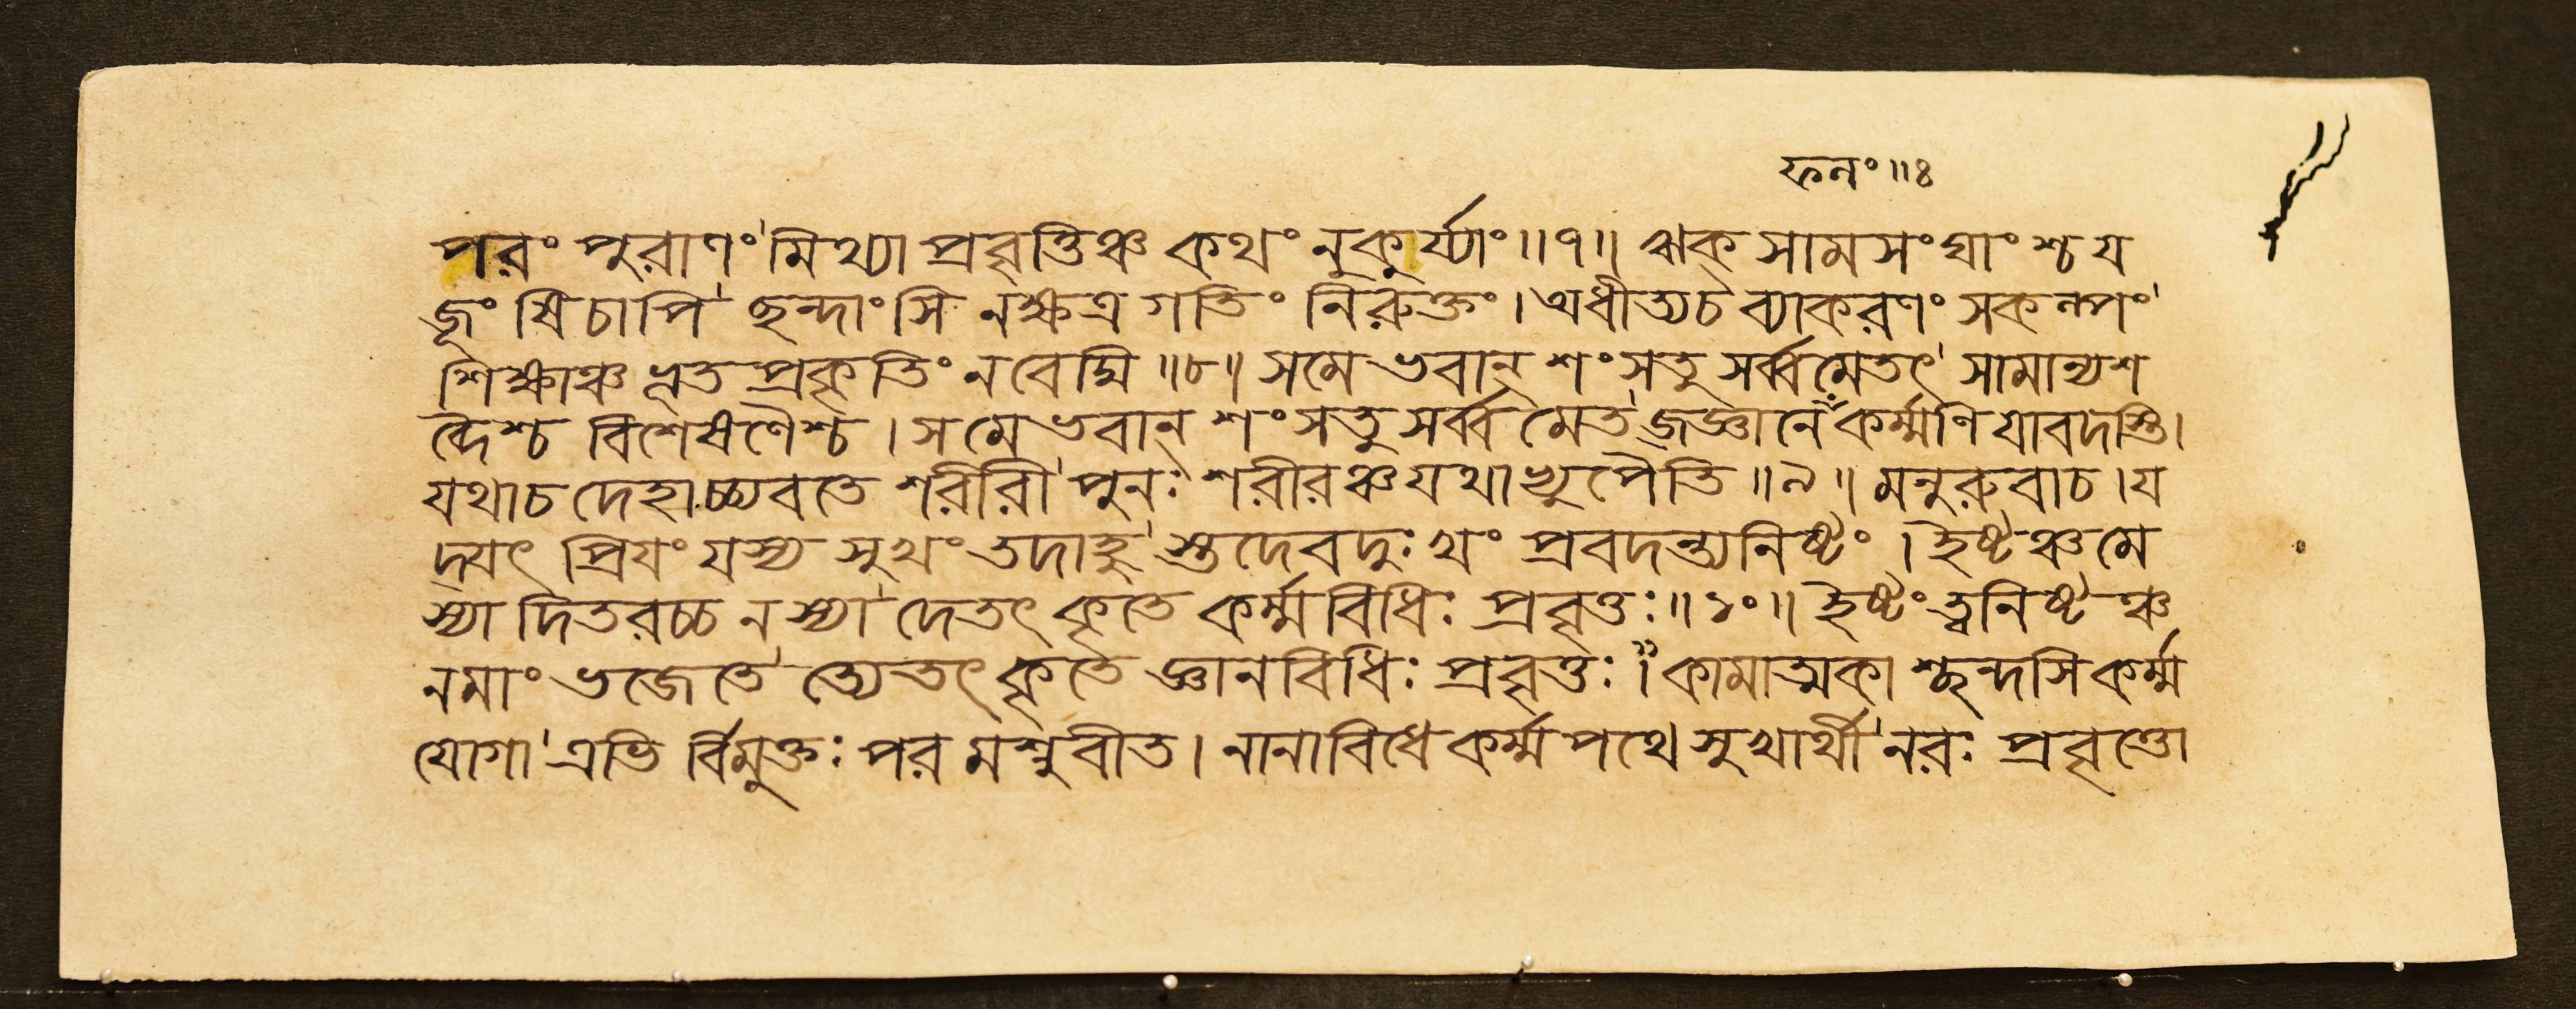 ফলং॥৪
পরং পুরাণং মিথ্যা প্রবৃত্তিঞ্চ কথং নুকুর্য্যাং॥৭॥ ঋক্ সামসংঘাংশ্চ য
জূংষিচাপি ছন্দাংসি নক্ষত্র গতিং নিরুক্তং। অধীত্যচ ব্যাকরণং সকল্পং
শিক্ষাঞ্চ ভূত প্রকৃতিং নবেদ্মি॥৮॥ সমে ভবান্ শংসতু সর্ব্বমেতৎ সামান্যশ
ব্দৈশ্চ বিশেষণৈশ্চ। সমে ভবান্ শংসতু সর্ব্ব মেতজ্জ্ঞানে কর্ম্মণি যাবদস্তি।
যথাচ দেহাচ্চ্যবতে শরীরী পুনঃ শরীরঞ্চ যথাভ্যুপৈতি॥৯॥ মনুরুবাচ। য
দ্যৎ প্রিযং যস্য সুখং তদাহু স্তদেবদুঃখং প্রবদন্ত্যনিষ্টং। ইষ্টঞ্চ মে
স্যা দিতরচ্চ ন স্যা দেতৎ কৃতে কর্ম্মবিধিঃ প্রবৃত্তঃ॥১০॥ ইষ্টং ত্বনিষ্টঞ্চ
নমাং ভজেতে ত্যেতৎ কৃতে জ্ঞানবিধিঃ প্রবৃত্তঃ। কামাত্মকা শ্ছন্দসি কর্ম্ম
যোগা এভি র্বিমুক্তঃ পর মশ্নুবীত। নানাবিধে কর্ম্মপথে সুখার্থী নরঃ প্রবৃত্তো